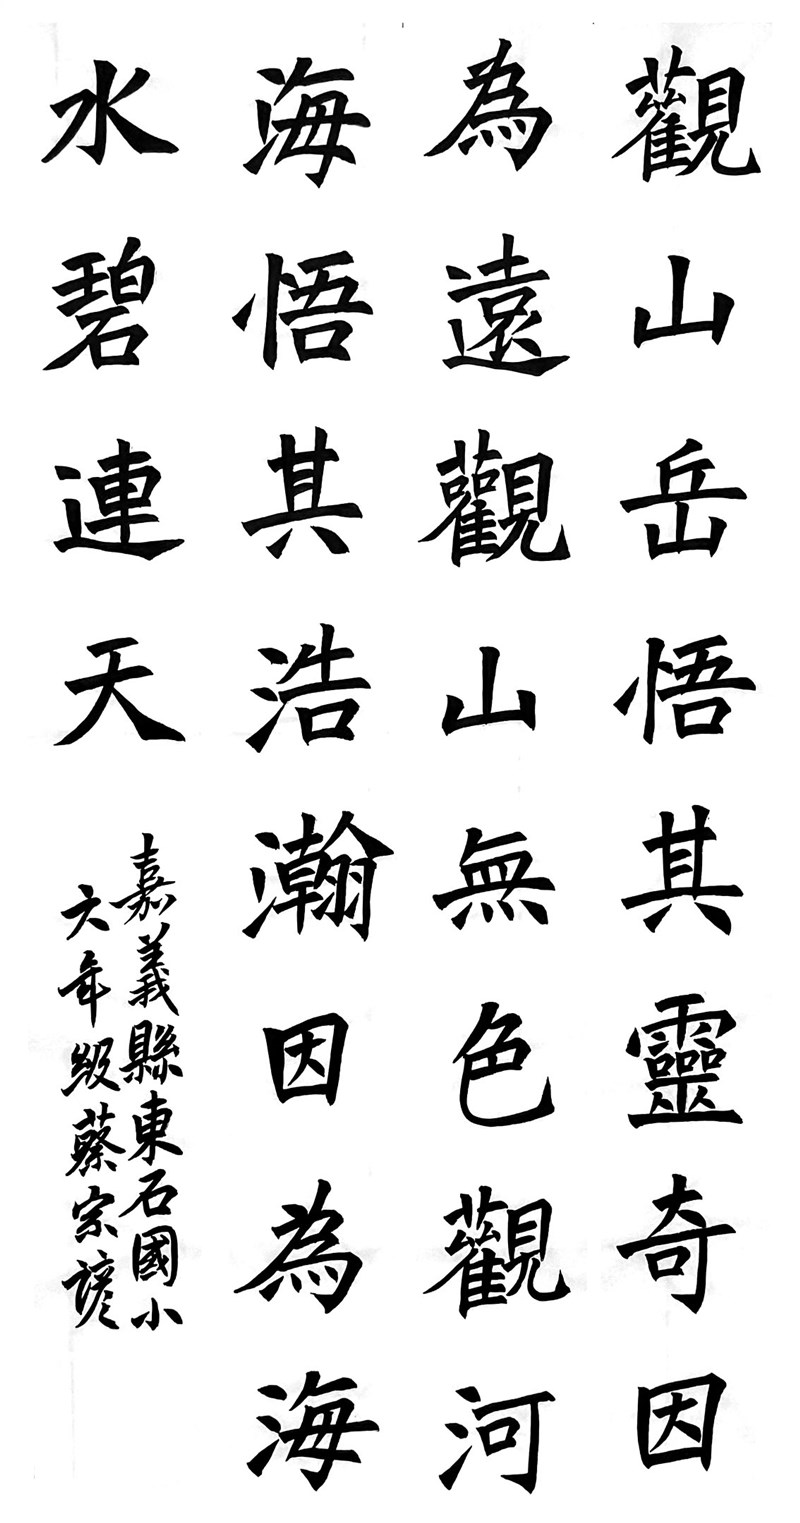 觀山岳悟其靈奇因
為遠觀山無色觀河
海悟其浩瀚因為海
水碧連天
嘉義縣東石國小
六年級蔡宗諺